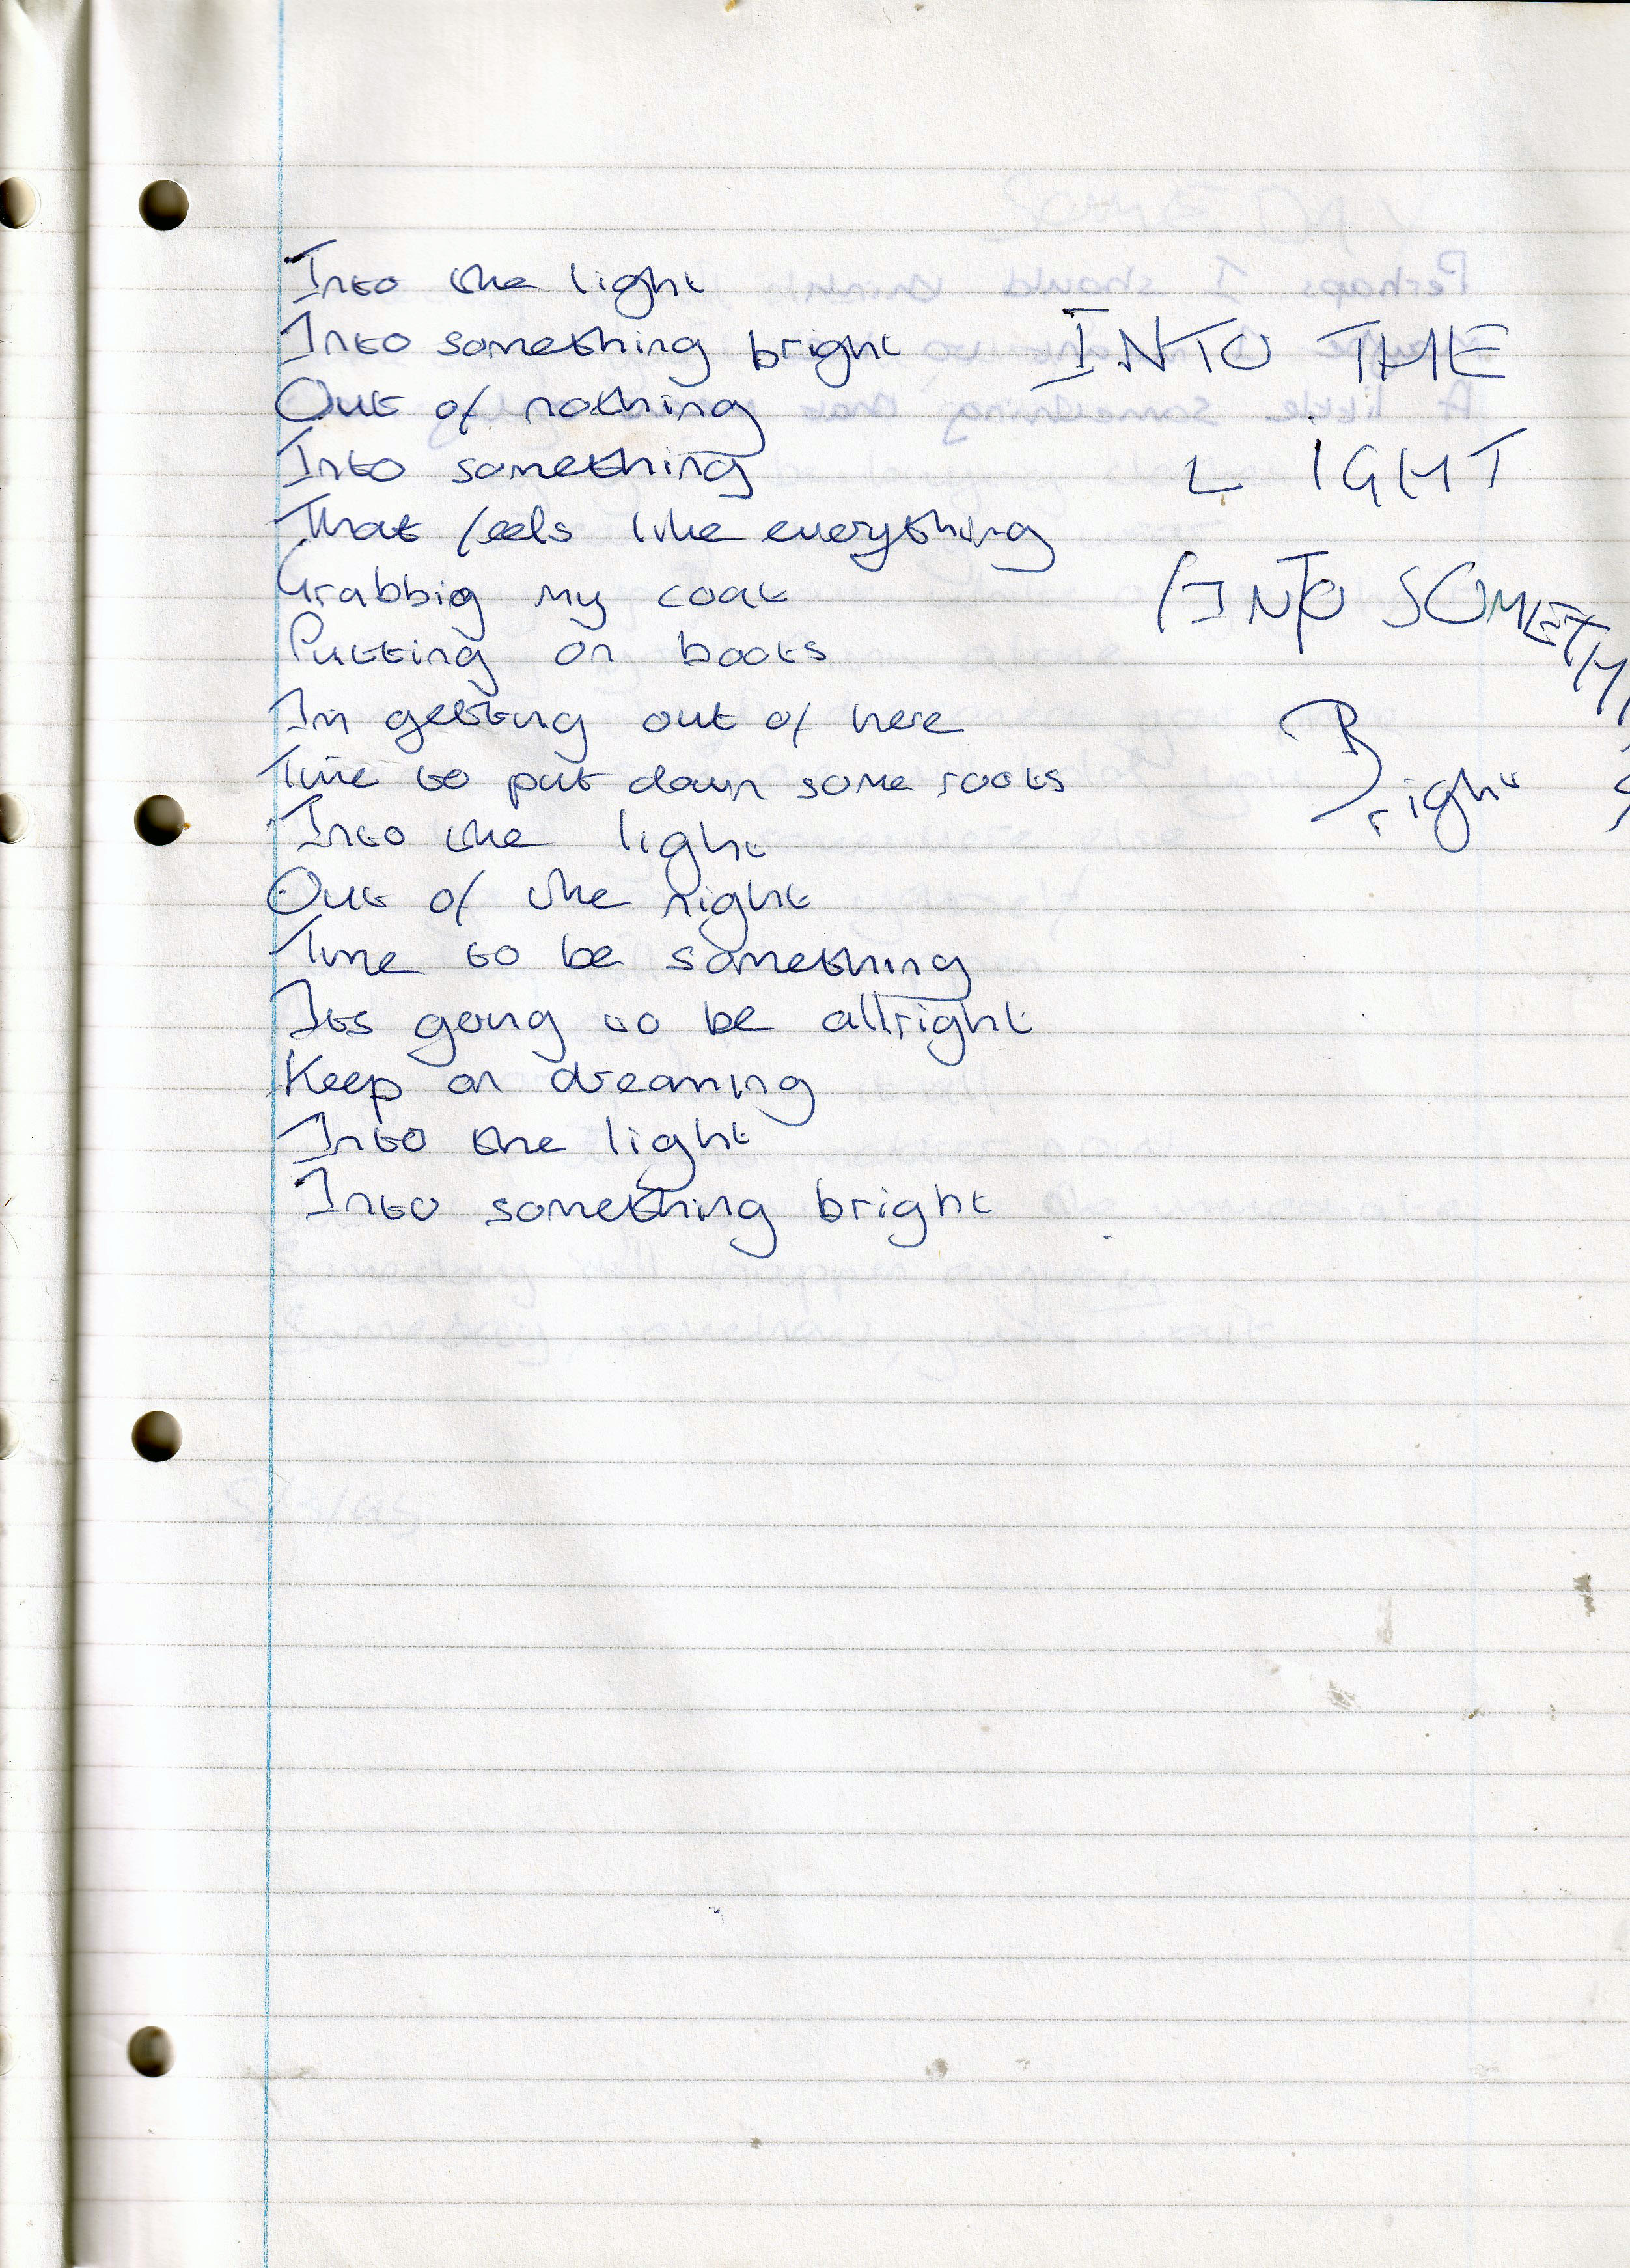 Into the light
Into something bright
Out of nothing
Into something
That feels like everything
Grabbig my coat
Putting on boots
Im getting out of here
Time to put down some roots
Into the light
Out of the night
Time to be something
Its going to be allright
Keep on dreaming
Into the light
Into something bright
INTO THE
LIGHT
(INTO SOMETHI
Bright